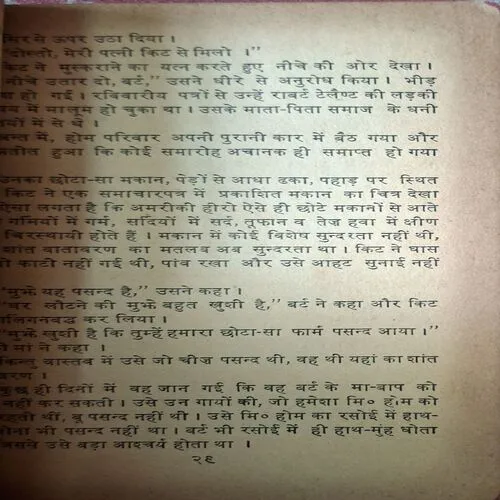 सिर से ऊपर उठा दिया।
"दोस्तो, मेरी पत्नी किट से मिलो।"
किट ने मुस्कराने का यत्न करते हुए नीचे की ओर देखा।
"नीचे उतार दो, बर्ट," उसने धीरे से अनुरोध किया। भीड़
हो गई। रविवारीय पत्रों से उन्हें राबर्ट टेलैण्ट की लड़की
में मालूम हो चुका था। उसके माता-पिता समाज के धनी
में से थे।
अन्त में, होम परिवार अपनी पुरानी कार में बैठ गया और
प्रतीत हुआ कि कोई समारोह अचानक ही समाप्त हो गया
उनका छोटा-सा मकान, पेड़ों से आधा ढका, पहाड़ पर स्थित
किट ने एक समाचारपत्र में प्रकाशित मकान का चित्र देखा
ऐसा लगता है कि अमरीकी हीरो ऐसे ही छोटे मकानों से आते
गर्मियों में गर्म, सर्दियों में सर्द, तूफान व तेज़ हवा में क्षीण
चिरस्थायी होते हैं। मकान में कोई विशेष सुन्दरता नहीं थी,
शांत वातावरण का मतलब अब सुन्दरता था। किट ने घास
काटी नहीं गई थी, पांव रखा और उसे आहट सुनाई नहीं
"मुझे यह पसन्द है," उसने कहा।
"घर लौटने की मुझे बहुत खुशी है," बर्ट ने कहा और किट
आलिंगनबद्ध कर लिया।
"मुझे खुशी है कि तुम्हें हमारा छोटा-सा फार्म पसन्द आया।"
मां ने कहा।
किन्तु वास्तव में उसे जो चीज़ पसन्द थी, वह थी यहां का शांत
कुछ ही दिनों में वह जान गई कि वह बर्ट के मा-बाप को
नहीं कर सकती। उसे उन गायों की, जो हमेशा मि० होम को
रहती थीं, बू पसन्द नहीं थी। उसे मि० होम का रसोई में हाथ-
धोना भी पसन्द नहीं था। बर्ट भी रसोई में ही हाथ-मुंह धोता
जिससे उसे बड़ा आश्चर्य होता था।
२९